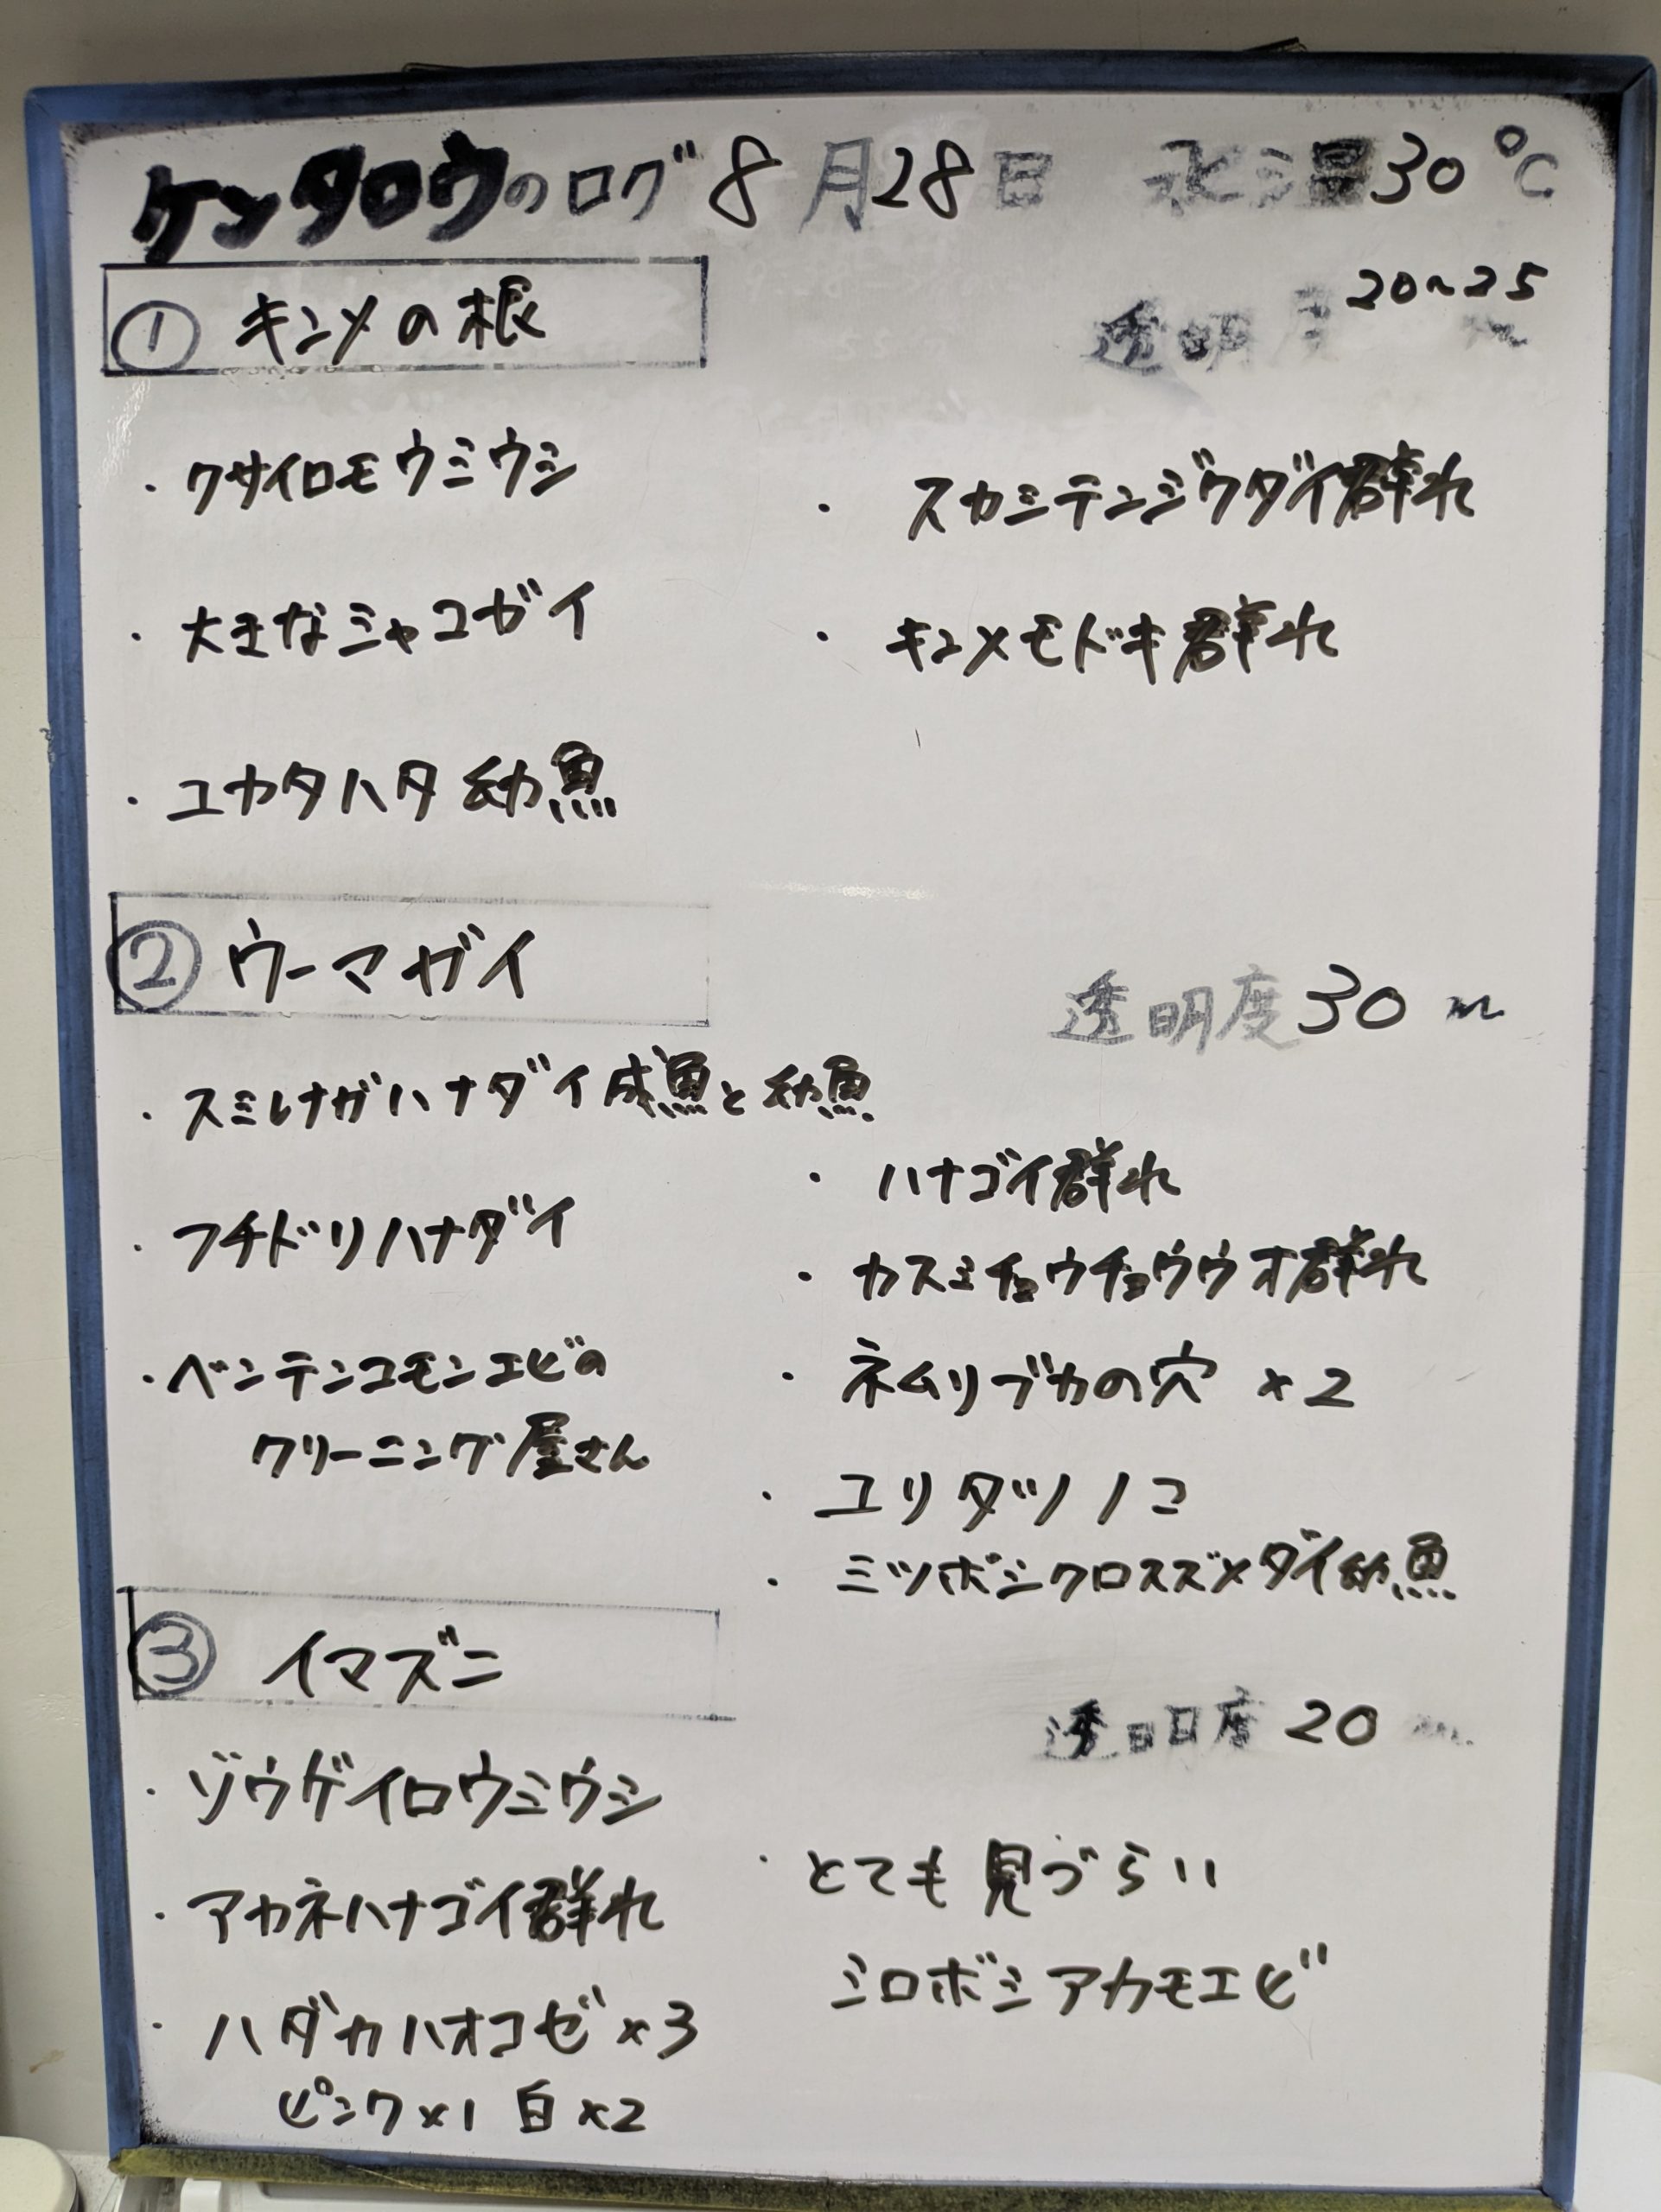 ケンタロウのログ 8月28日 水温30℃
① キンメの根
透明度 20~25 m
・クサイロモウミウシ
・大きなシャコガイ
・ユカタハタ幼魚
・スカシテンジクダイ群れ
・キンメモドキ群れ
② ウーマガイ
透明度30m
・スミレナガハナダイ成魚と幼魚
・フチドリハナダイ
・ベンテンコモンエビの
クリーニング屋さん
・ハナゴイ群れ
・カスミチョウチョウウオ群れ
・ネムリブカの穴 ×2
・ユリタツノコ
・ミツボシクロスズメダイ幼魚
③ イマズニ
透明度 20 m
・ゾウゲイロウミウシ
・アカネハナゴイ群れ
・ハダカハオコゼ×3
ピンク×1 白×2
・とても見づらい
シロボシアカモエビ